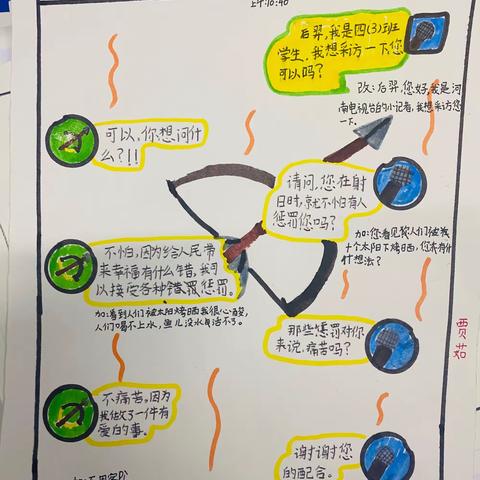 上午10:40
后羿,我是四(3)班
学生,我想采访一下您
可以吗?
改:后羿,您好,我是河
南电视台的小记者,我想采访您
一下.
可以,你想问什
么?!!
请问,您在射
日时,就不怕有人
惩罚您吗?
加:您看见人们被我
十个太阳下烤晒,您
什想法?
不怕,因为给人民带
来幸福有什么错,我可
以接受各种惩罚。
加:看到人们被太阳烤晒我很心酸,
人们喝不上水,鱼儿没水身活不了。
那些惩罚对你
来说,痛苦吗?
贾茹
不痛苦,因为
我做了一件有
爱的事.
谢谢您
的配合。